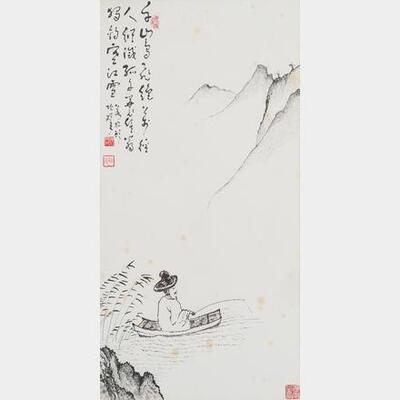 千山鳥飛絕萬徑
人蹤滅孤舟蓑笠翁
獨釣寒江雪